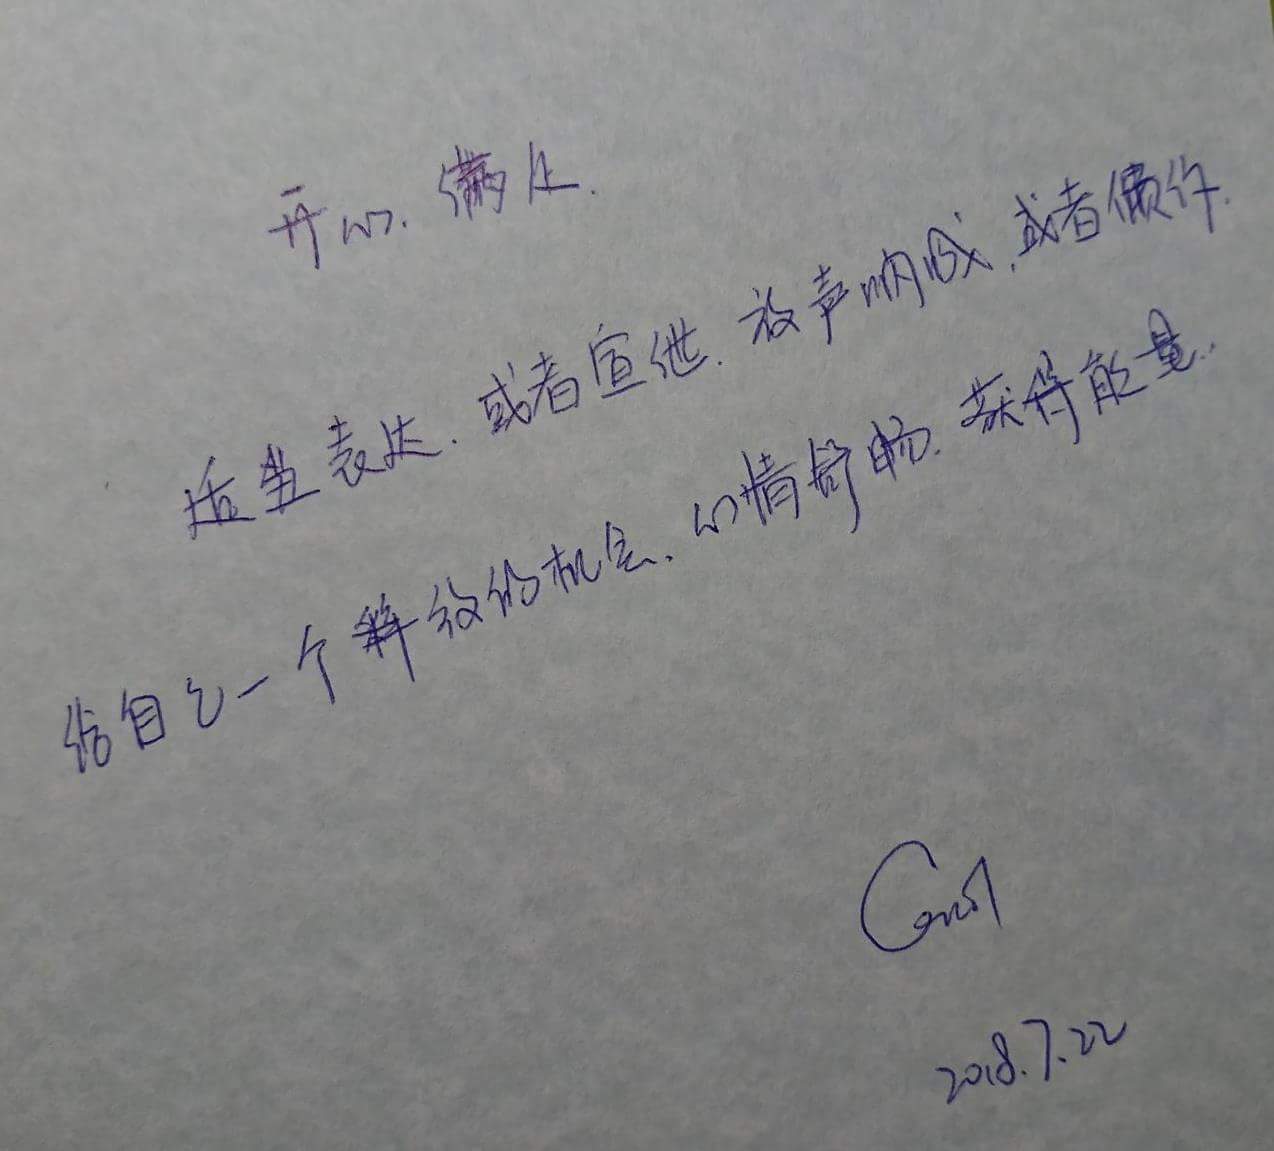 开心. 满足.
适当表达. 或者宣泄. 放声呐喊, 或者慎作.
给自己一个释放的机会. 心情舒畅. 获得能量.
Carol
2018.7.22